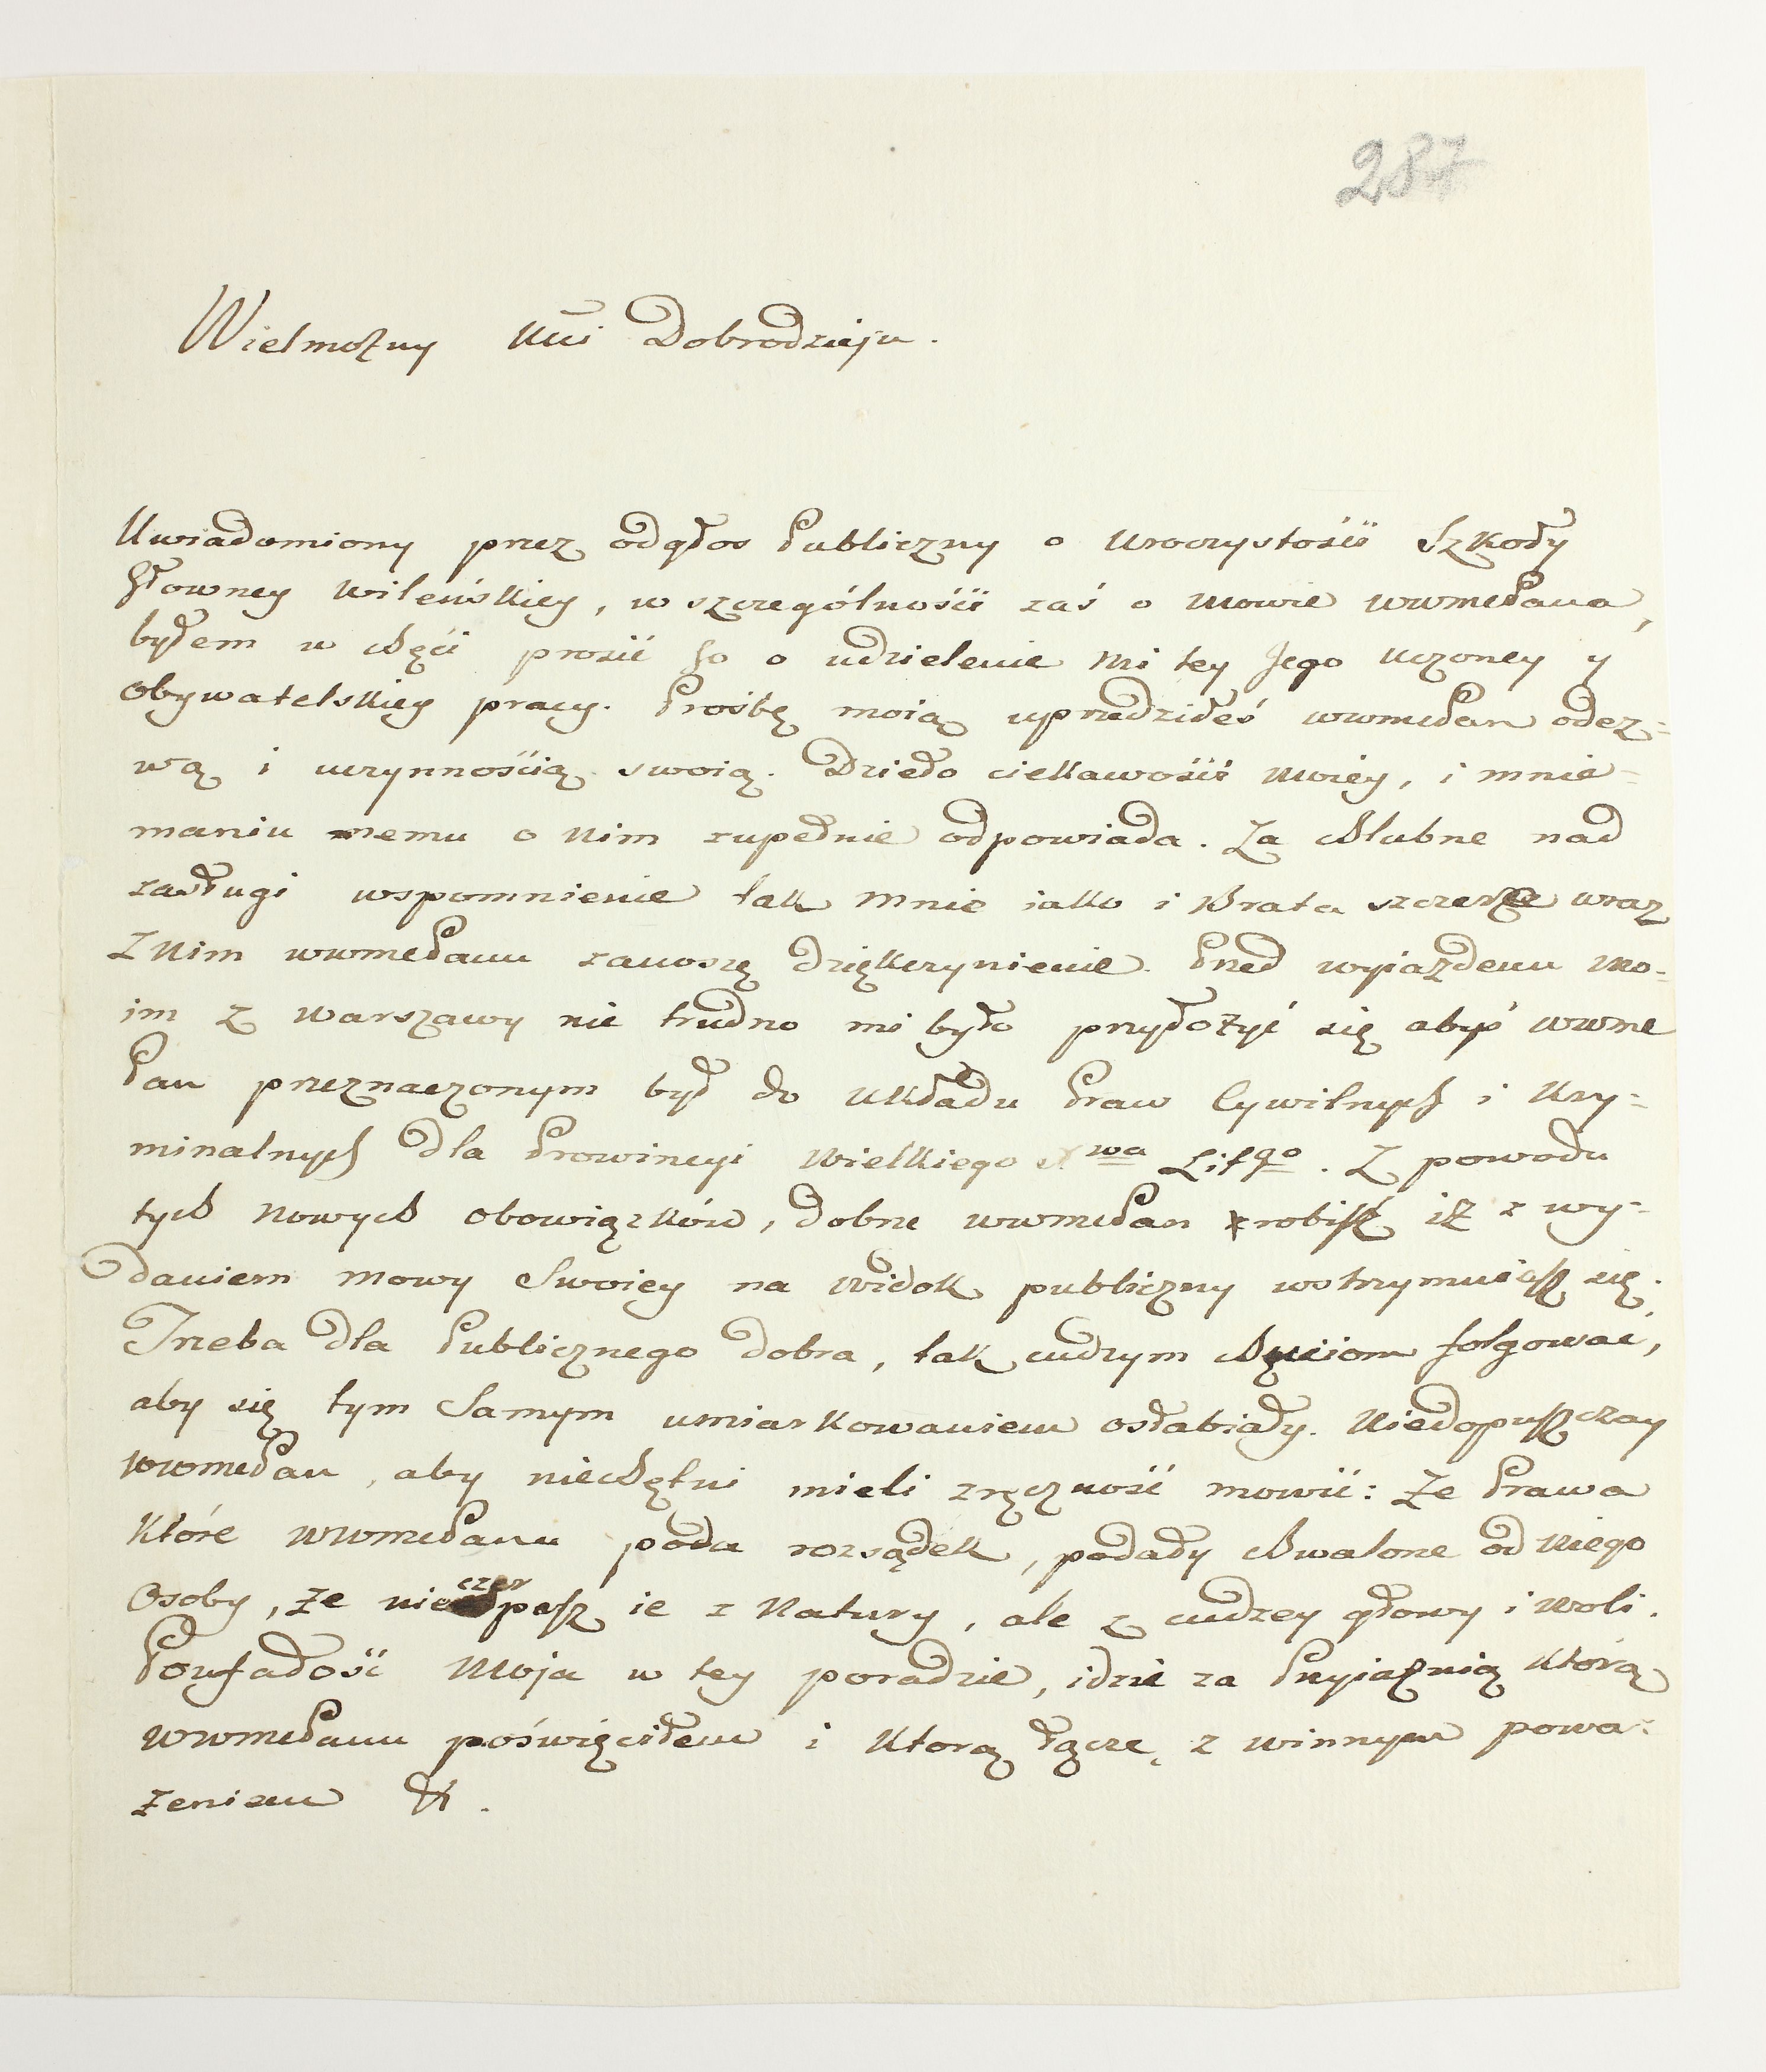 287
Wielmożny Mci Dobrodzieju.
Uwiadomiony przez odgłos Publiczny o Uroczystości Szkoły
Głowney Wileńskiey, w szczególności zaś o Mowie WWmcPana,
byłem w chęci prosić Go o udzielenie Mi tey Jego Uczoney y
Obywatelskiey pracy. Prośbę moią uprzedziłeś WWmcPan odez=
wą i uczynnością swoią. Dzieło ciekawości Moiey, i mnie=
maniu memu o Nim zupełnie odpowiada. Za chlubne nad
zasługi wspomnienie tak Mnie iako i Brata szczerze wraz
z Nim WWmcPanu zanoszę dziękczynienie. Przed wyiazdem Mo=
im z Warszawy nie trudno mi było przyłożyć się abyś WWmc
Pan przeznaczonym był do Układu Praw Cywilnych i Kry=
minalnych dla Prowincyi Wielkiego X wa Lit go. Z powodu
tych Nowych Obowiązków, dobrze WWmcPan zrobisz iż z wy=
daniem mowy Swoiey na Widok publiczny wstrzymuiesz się.
Trzeba dla Publicznego dobra, tak cudzym chęciom folgować,
aby się tym Samym umiarkowaniem osłabiały. Niedopuszczay
WWmcPan, aby niechętni mieli zręczność mowić: że Prawa
Które WWmcPanu poda rozsądek, podały chwalone od Niego
Osoby, że nie czerpasz ie z Natury, ale z cudzey głowy i Woli.
Poufałość Moja w tey poradzie, idzie za Przyiaznią Którą
WWmcPanu poświęciłem i Ktorą łączę z winnym powa=
żeniem &.